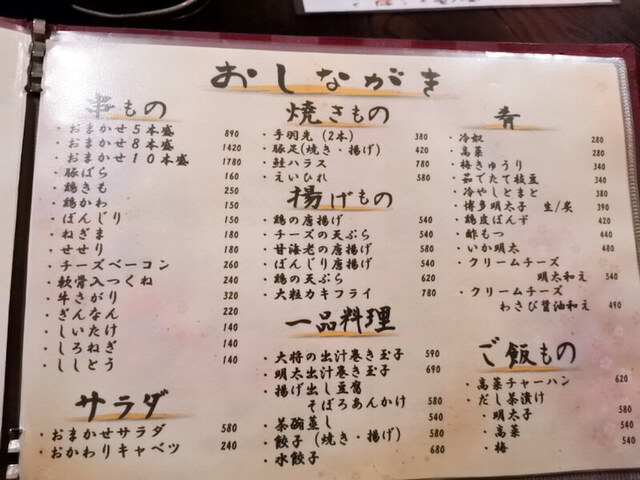 おしながき
串もの
・おまかせ5本盛 890
・おまかせ8本盛 1420
・おまかせ10本盛 1780
・豚ばら 160
・鶏きも 250
・鶏かわ 150
・ぼんじり 150
・ねぎま 180
・せせり 180
・チーズベーコン 260
・軟骨入つくね 240
・牛さがり 320
・ぎんなん 220
・しいたけ 140
・しろねぎ 140
・ししとう 140
サラダ
・おまかせサラダ 580
・おかわりキャベツ 240
焼きもの
・手羽先(2本) 380
・豚足(焼き・揚げ) 420
・鮭ハラス 780
・えいひれ 580
揚げもの
・鶏の唐揚げ 540
・チーズの天ぷら 540
・甘海老の唐揚げ 580
・ぼんじり唐揚げ 540
・鶏の天ぷら 620
・大粒カキフライ 780
一品料理
・大将の出汁巻き玉子 590
・明太出汁巻き玉子 690
・揚げ出し豆腐
そぼろあんかけ 580
・茶碗蒸し 540
・餃子(焼き・揚げ) 580
・水餃子 680
肴
・冷奴 280
・高菜 280
・梅きゅうり 340
・茹でたて枝豆 340
・冷やしとまと 380
・博多明太子 生/炙 390
・鶏皮ぽんず 420
・酢もつ 440
・いか明太 480
・クリームチーズ
明太和え 540
・クリームチーズ
わさび醤油和え 490
ご飯もの
・高菜チャーハン 620
・だし茶漬け
・明太子 580
・高菜 540
・梅 540